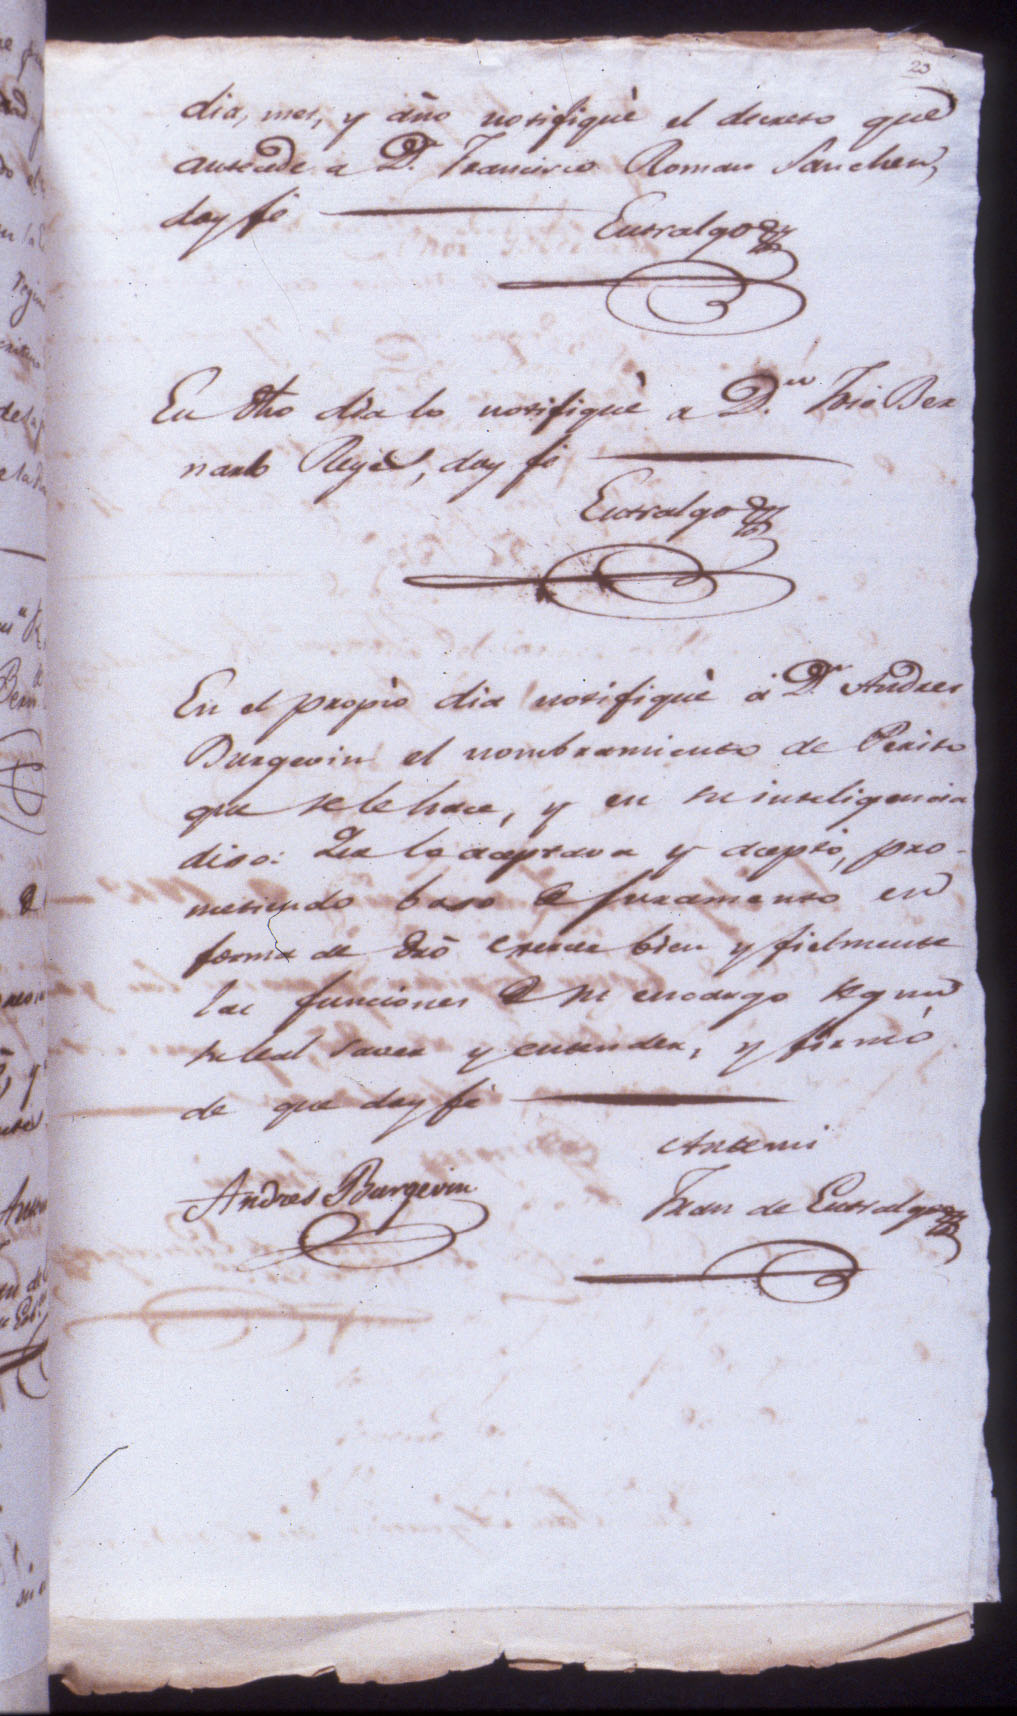 23
dia, mes, y año notifiquè el decreto que
antecede a D.n Francisco Roman Sanchen,
doy fé
Entralgo
En dho dia lo notifiquè a D.n Jose Ber
nardo Reyes, doy fé
Entralgo
En el propio dia notifiquè á D.n Andres
Burgevin el nombramiento de Perito
que se le hace, y en su inteligencia
dixo: Que lo aceptava y aceptó, pro-
metiendo baxo de juramento en
forma de dro exerce bien y fielmente
las funciones de su encargo segun
su leal saver y entender, y firmó
de que doy fé
Antemi
Andres Burgevin
Juan de Entralgo